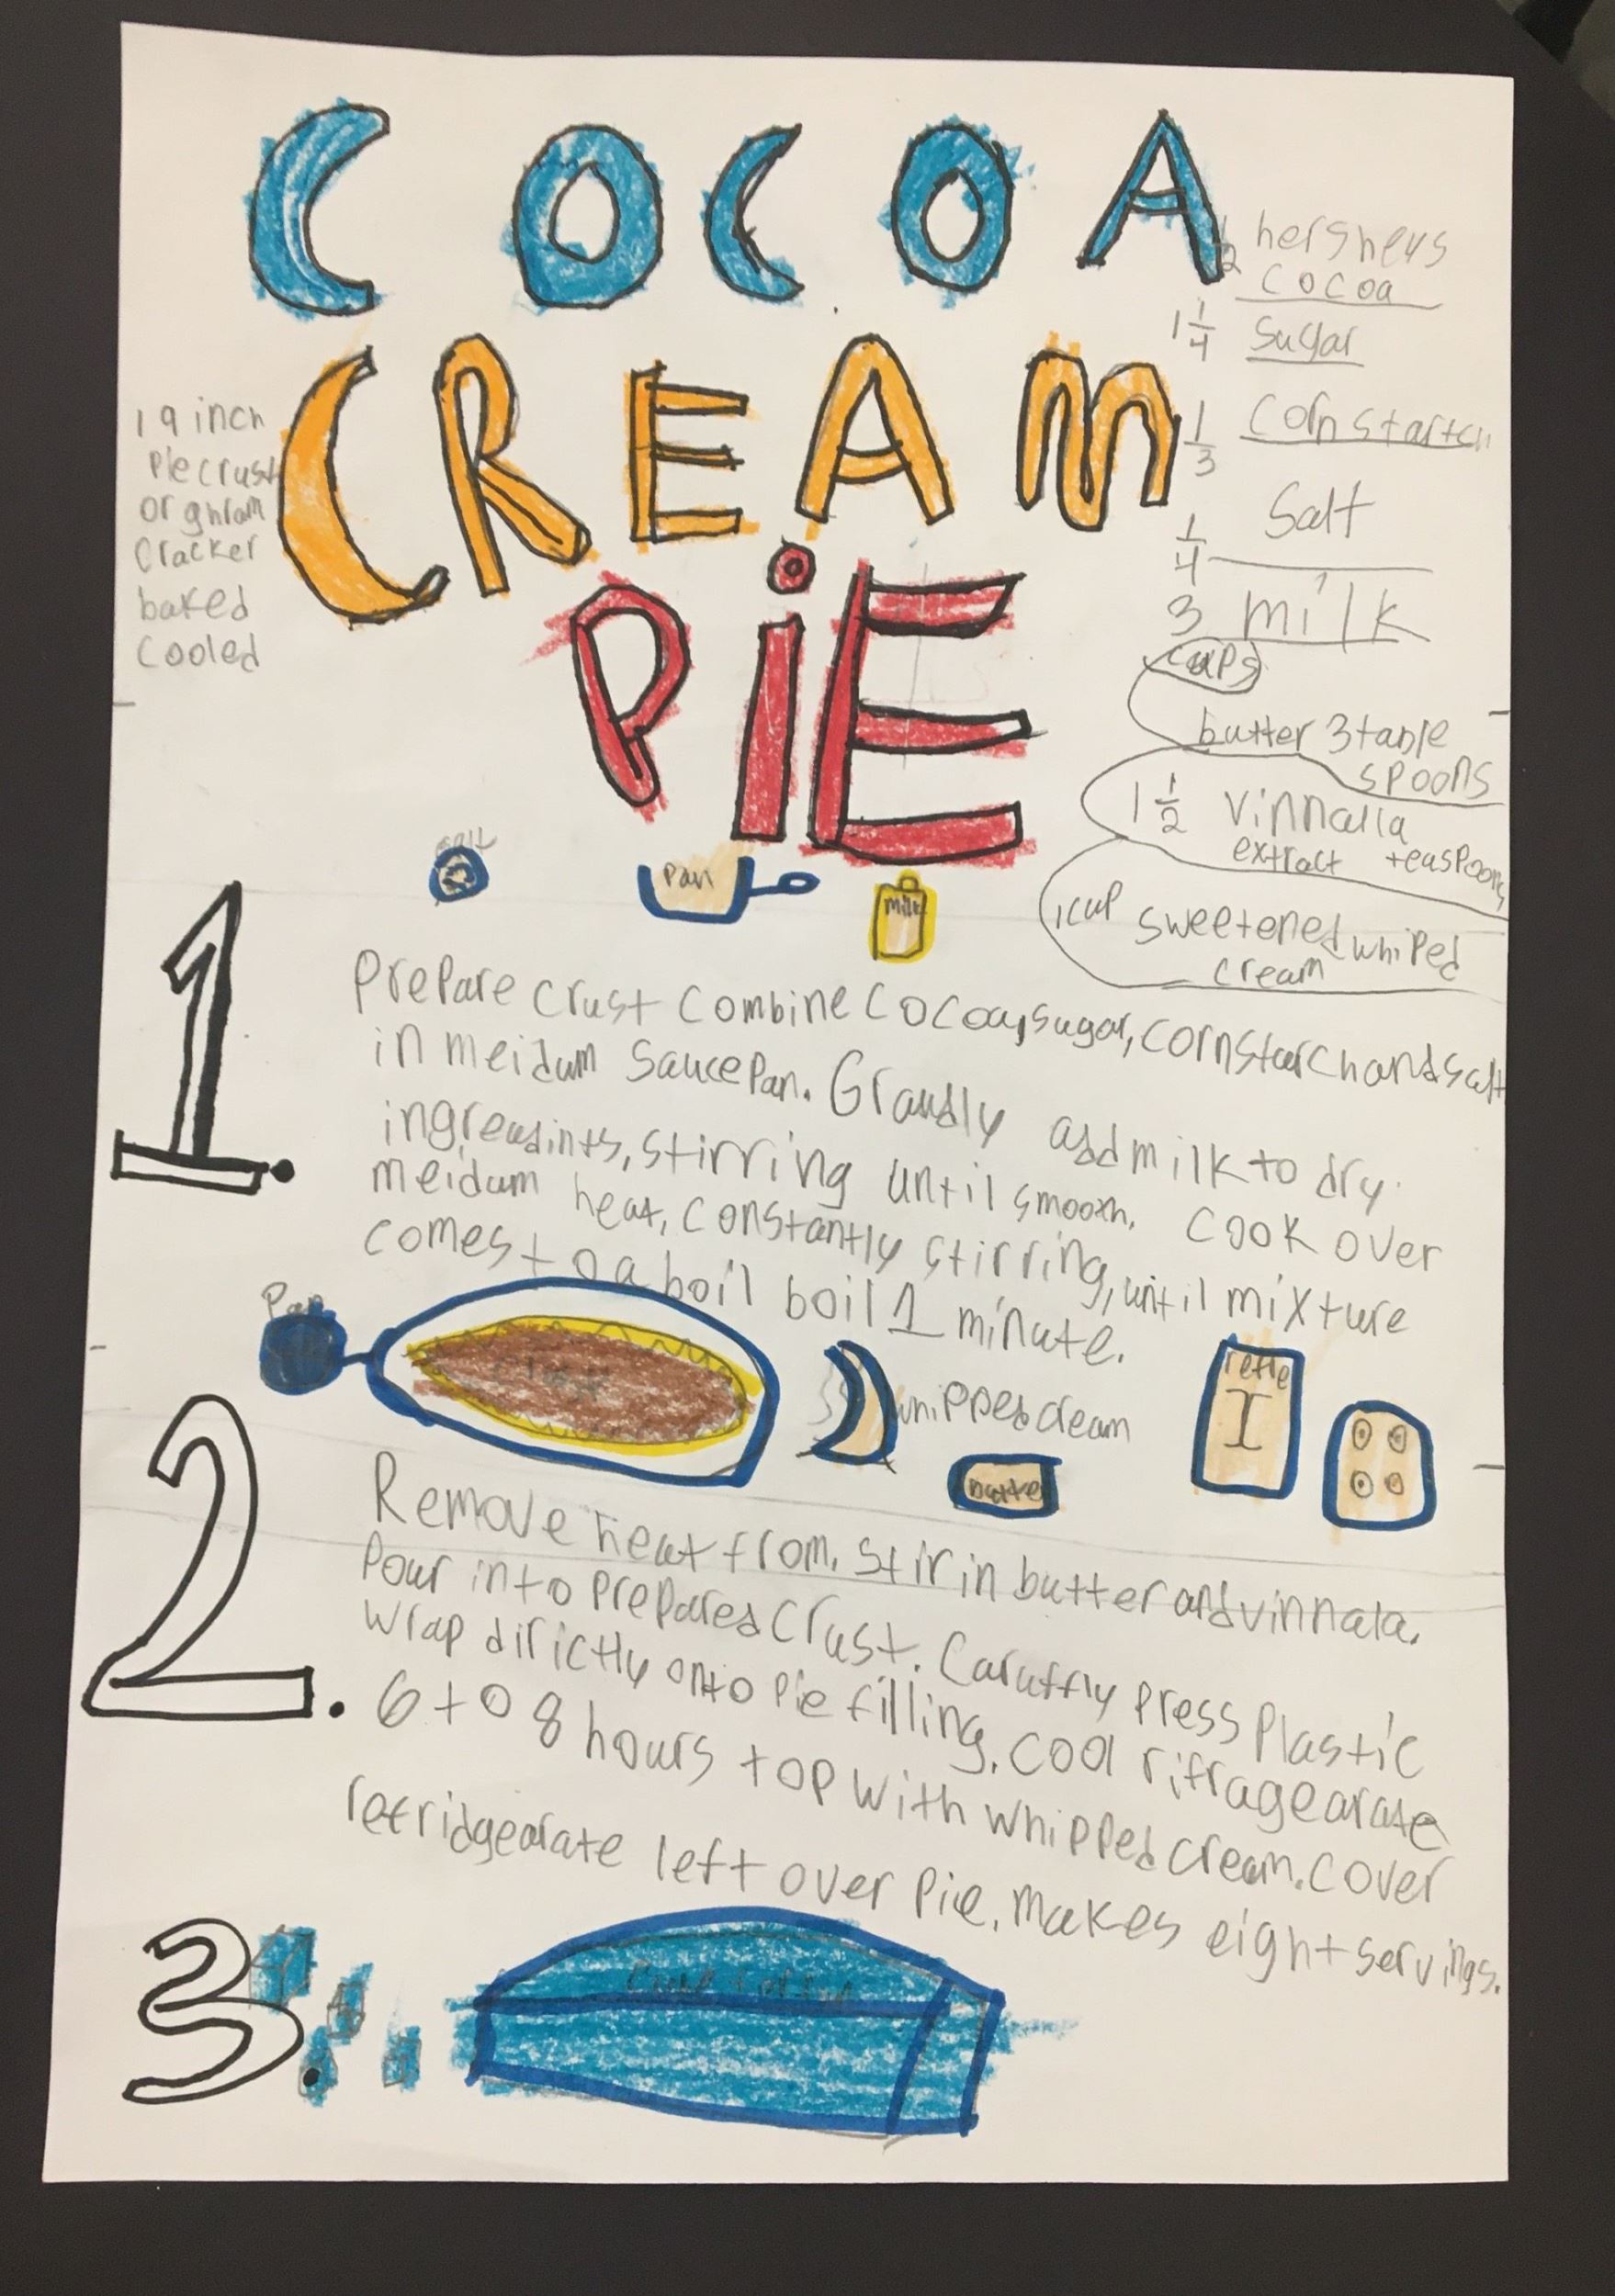 COCOA
CREAM
PiE
1 9 inch
Piecrust
or ghram
Cracker
baked
Cooled
1/2 hersheys
cocoa
1 1/4 Sugar
1/3 Cornstartch
1/4 Salt
3 milk
cups
butter 3 table
spoons
1 1/2 vinnalla
extract teaspoons
1 cup sweetened whiped
cream
salt
Pan
milk
1.
Prepare crust combine cocoa, sugar, cornstarch and salt
in meidum saucepan. Graudly add milk to dry
ingreadints, stirring until smooth. cook over
meidum heat, constantly stirring, until mixture
comes to a boil boil 1 minute.
Pan
whipped cream
butter
2.
Remove heat from. stir in butter and vinnala.
Pour into prepared crust. Caruffly press plastic
wrap dirictly onto pie filling. cool rifragearate
6 to 8 hours top with whipped cream. cover
refridgearate left over pie. makes eight servings.
3.